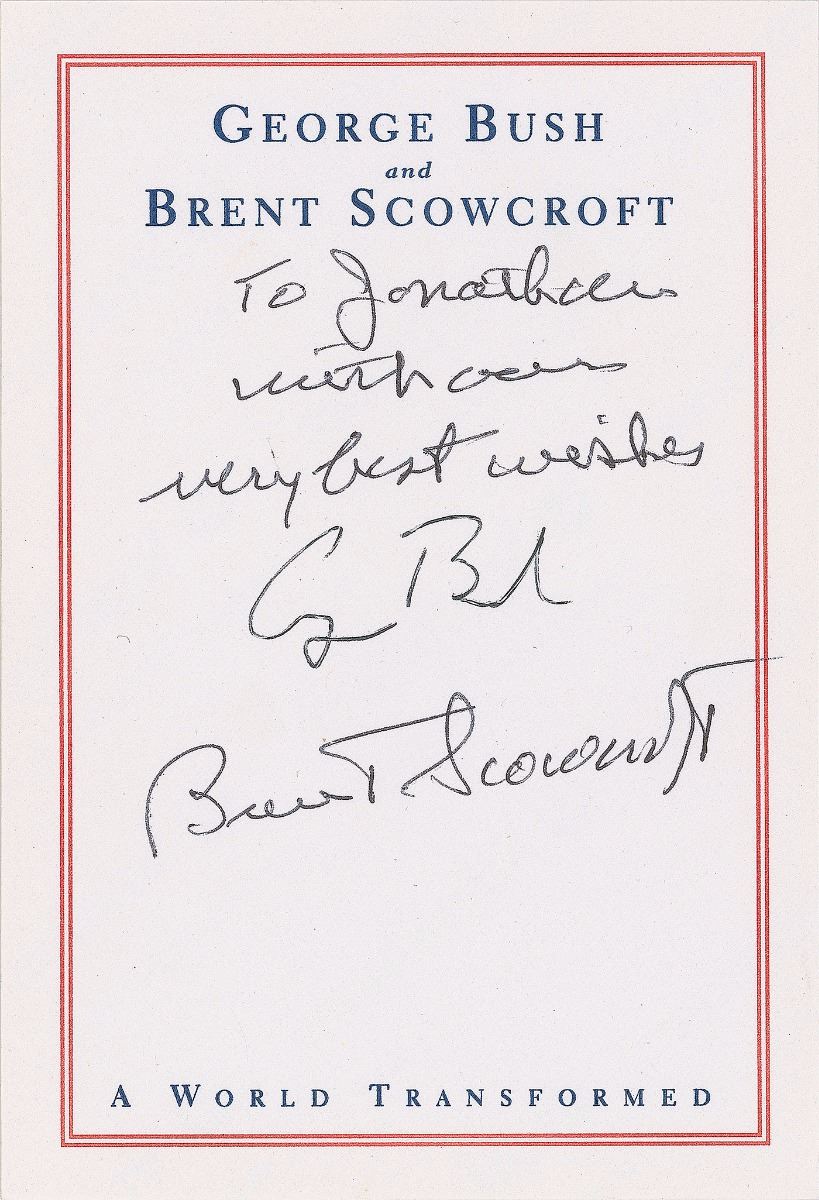 GEORGE BUSH
and
BRENT SCOWCROFT
To Jonathan
with our
very best wishes
G Bush
Brent Scowcroft
A WORLD TRANSFORMED